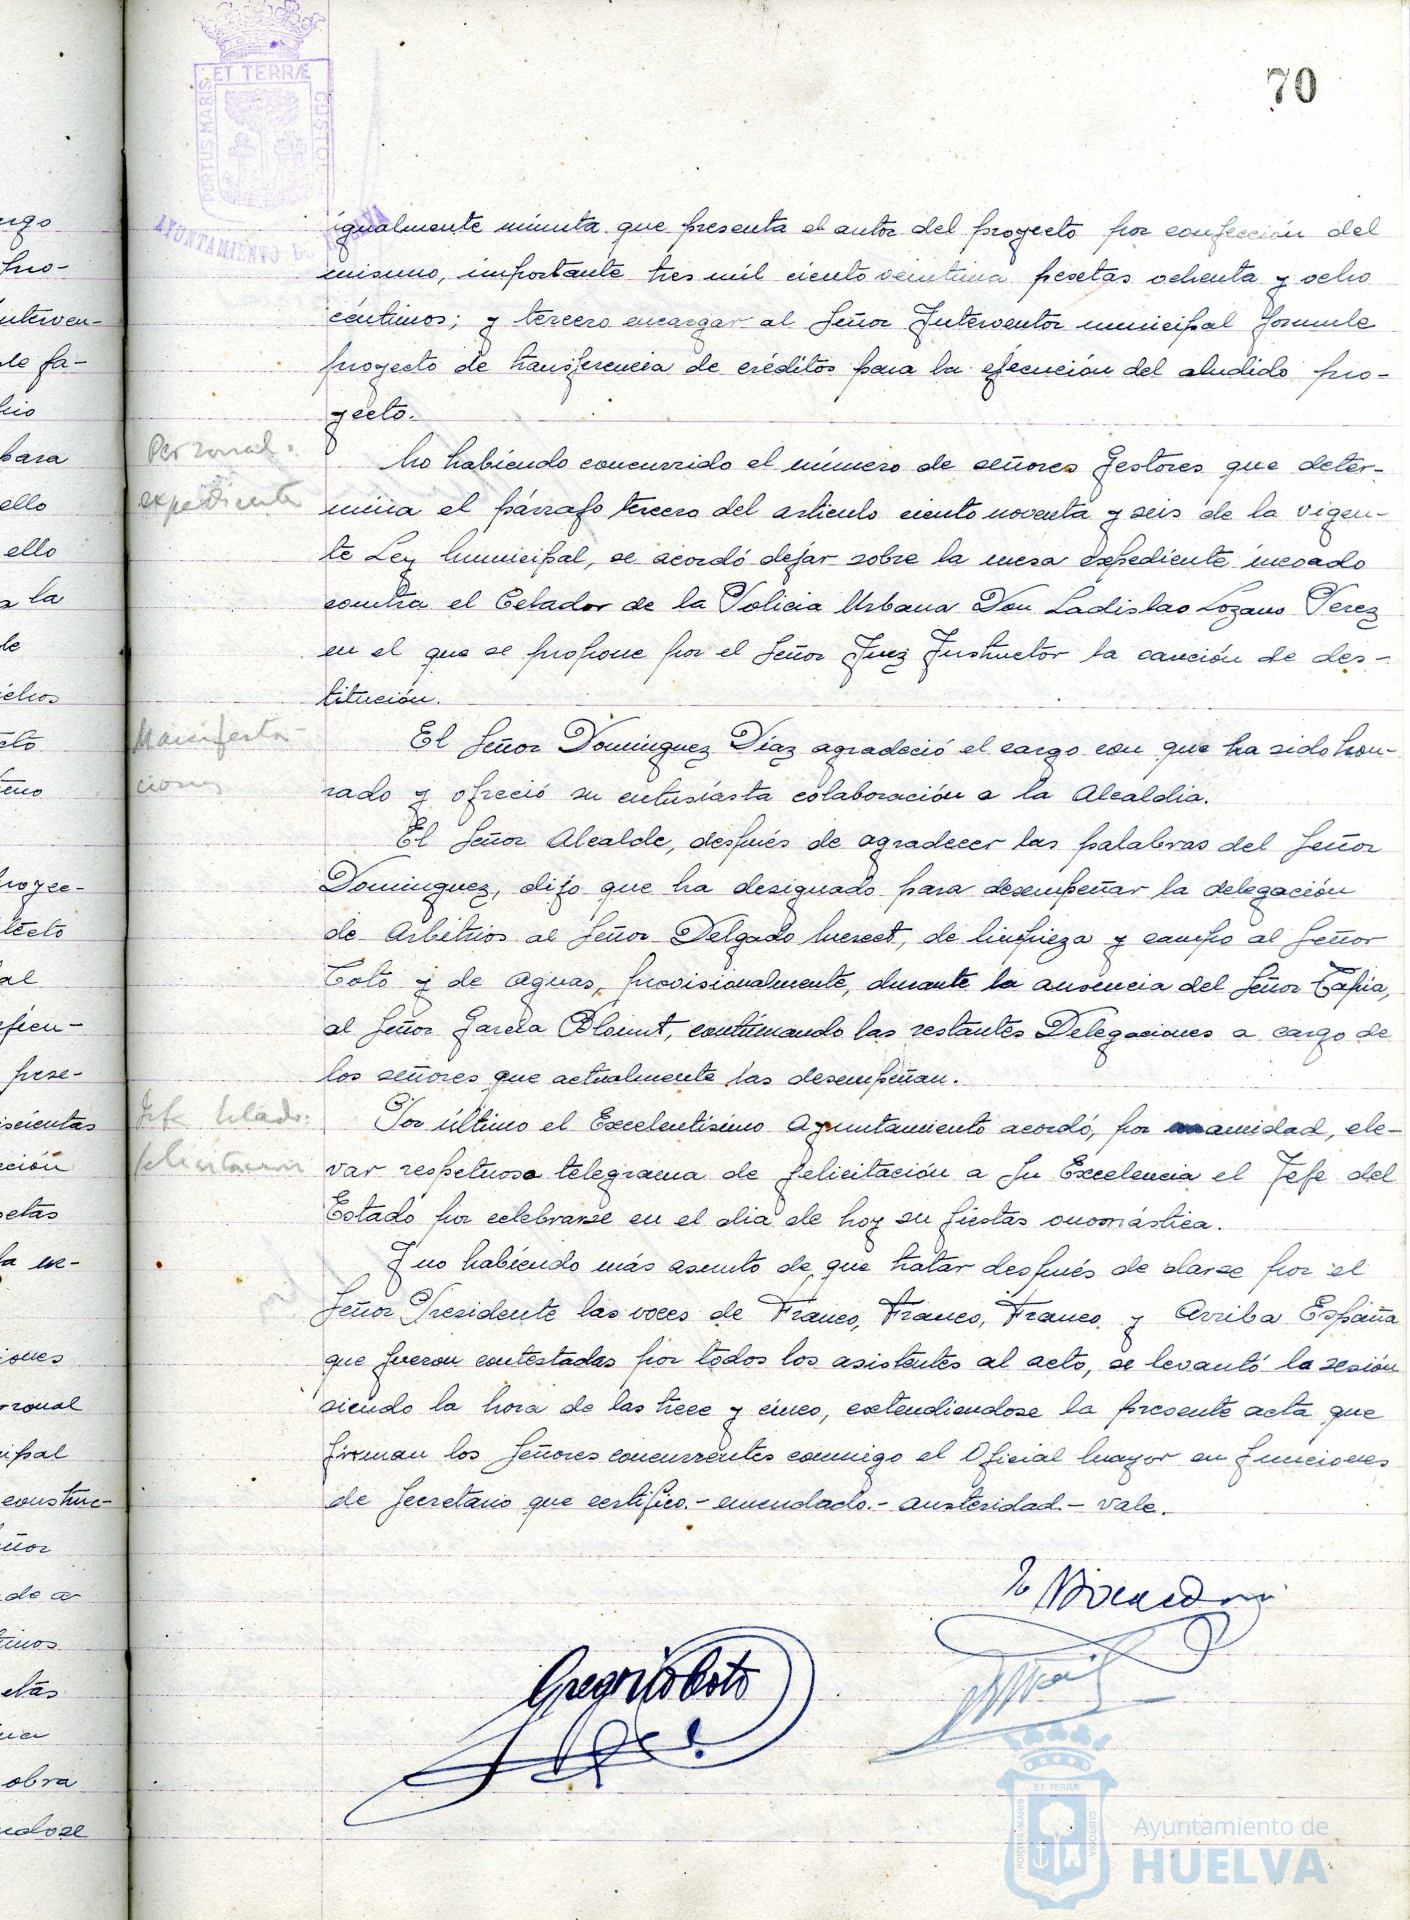 70
PORTUS MARIS ET TERRÆ CUSTO
AYUNTAMIENTO DE HUELVA
igualmente minuta que presenta el autor del proyecto por confección del
mismo, importante tres mil ciento veintiuna pesetas ochenta y ocho
céntimos; y tercero encargar al Señor Interventor municipal formule
proyecto de transferencia de créditos para la ejecución del aludido pro-
yecto.
Personal.
expediente
No habiendo concurrido el número de señores Gestores que deter-
mina el párrafo tercero del articulo ciento noventa y seis de la vigen-
te Ley Municipal, se acordó dejar sobre la mesa expediente incoado
contra el Celador de la Policia Urbana Don Ladislao Lozano Perez
en el que se propone por el Señor Juez Instructor la sanción de des-
titución.
Manifesta-
ciones
El Señor Dominguez Díaz agradeció el cargo con que ha sido hon-
rado y ofreció su entusiasta colaboración a la Alcaldia.
El Señor Alcalde, después de agradecer las palabras del Señor
Dominguez, dijo que ha designado para desempeñar la delegación
de Arbitrios al Señor Delgado Merect, de limpieza y campo al Señor
Coto y de Aguas, provisionalmente, durante la ausencia del Señor Tapia,
al Señor García Blount, continuando las restantes Delegaciones a cargo de
los señores que actualmente las desempeñan.
Jefe Estado.
felicitacion
Por último el Excelentisimo Ayuntamiento acordó, por unamidad, ele-
var respetuoso telegrama de felicitación a Su Excelencia el Jefe del
Estado por celebrarse en el dia de hoy su fiestas onomástica.
Y no habiendo más asunto de que tratar después de darse por el
Señor Presidente las voces de Franco, Franco, Franco y Arriba España
que fueron contestadas por todos los asistentes al acto, se levantó la sesión
siendo la hora de las trece y cinco, extendiendose la presente acta que
firman los Señores concurrentes conmigo el Oficial Mayor en funciones
de Secretario que certifico.- enmendado.- austeridad.- vale.
Gregorio Coto
ET TERRÆ
PORTUS MARIS
CUSTODIA
Ayuntamiento de
HUELVA